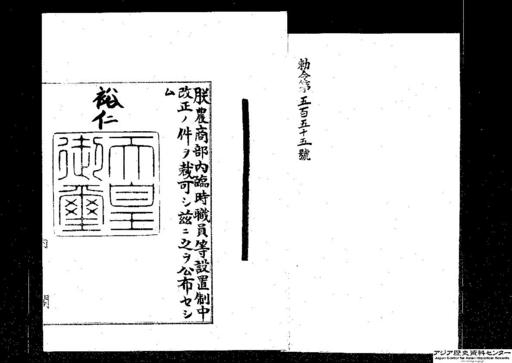 勅令第五百五十五號
朕農商部内臨時職員等設置制中
改正ノ件ヲ裁可シ玆ニ之ヲ公布セシ
ム
裕仁
天皇
御璽
内閣
アジア歴史資料センター
Japan Center for Asian Historical Records